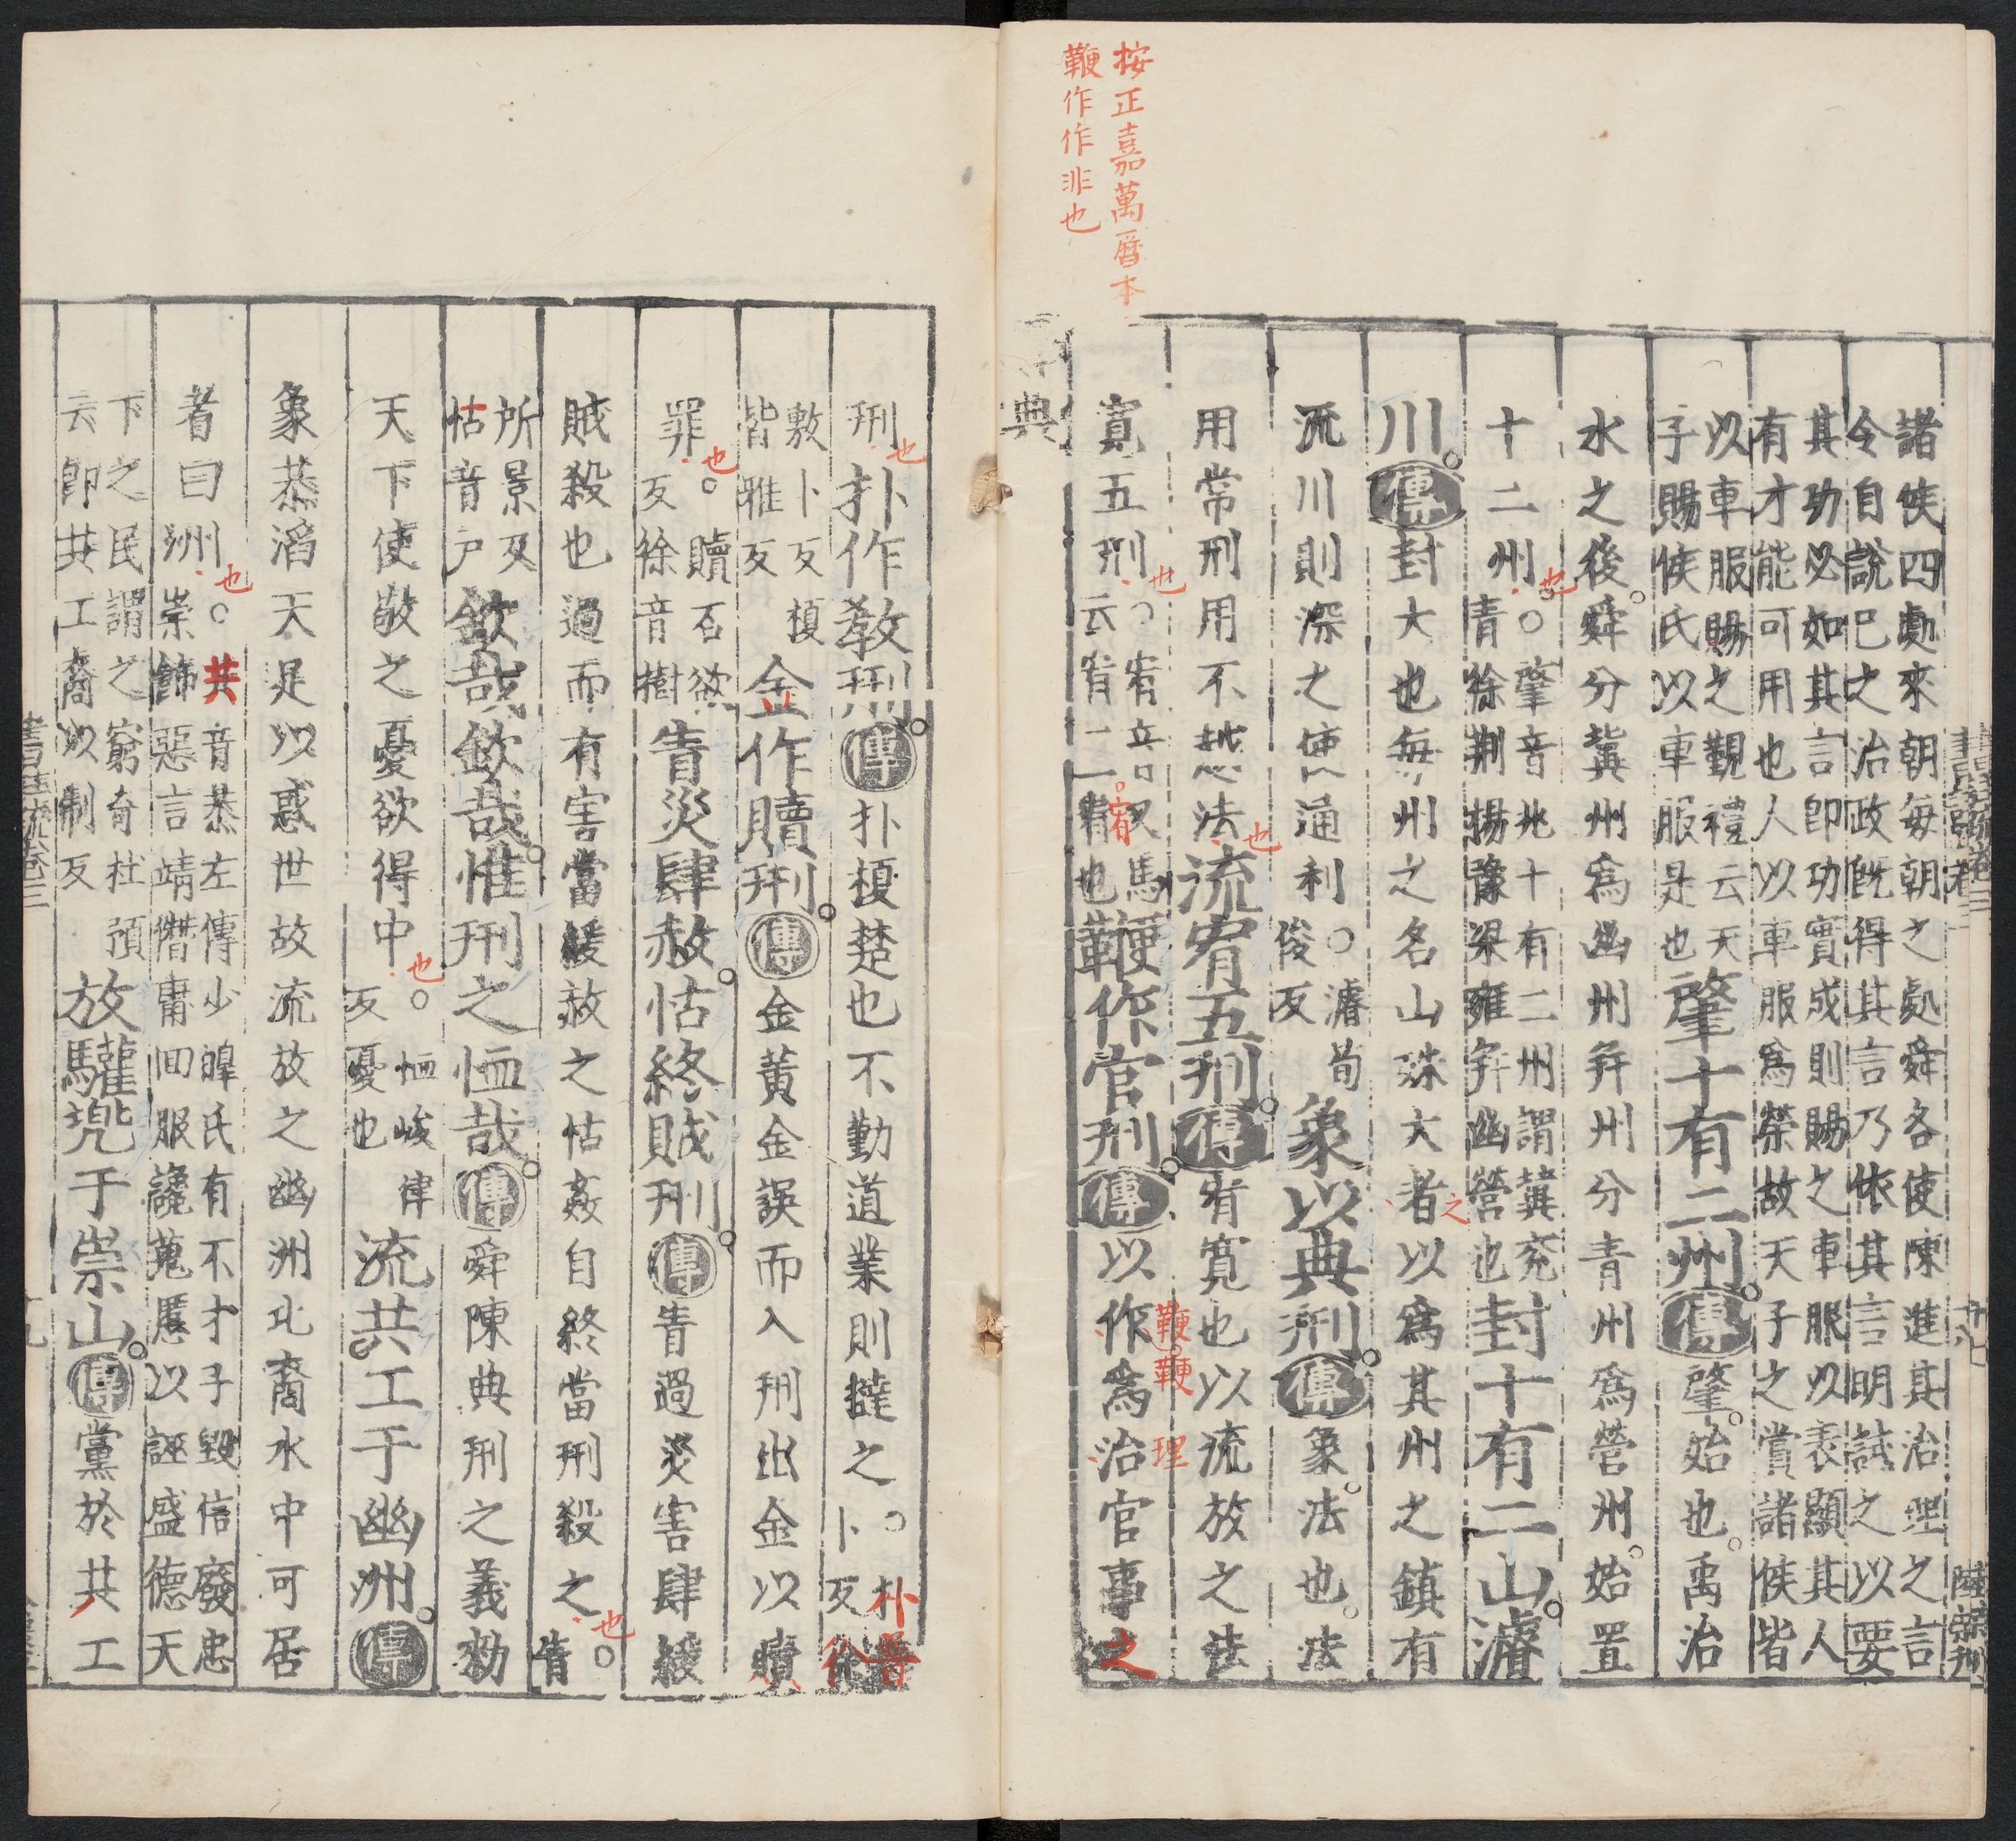 按正嘉萬曆本
鞭作作非也
諸侯四處來朝每朝之處舜各使陳進其治理之言
令自說已之治政既得其言乃依其言明試之以要
其功必如其言即功實成則賜之車服以表顯其人
有才能可用也人以車服爲榮故天子之賞諸侯皆
以車服賜之覲禮云天
子賜侯氏以車服是也
肇十有二州傳肇始也禹治
水之後舜分冀州爲幽州并州分青州爲營州始置
十二州也
肇音兆十有二州謂冀兖
青徐荆揚豫梁雍并幽營也
封十有二山濬
川傳封大也每州之名山殊大者之以爲其州之鎮有
流川則深之使通利
濬荀
俊反
象以典刑傳象法也法
用常刑用不越法也流宥五刑傳宥寬也以流放之法
寛五刑也
宥音又馬
云宥三宥也
鞭作官刑傳以作爲治官事之
鞭鞭
理
典
刑也扑作教刑傳扑榎楚也不勤道業則撻之
朴普
卜反徐
敷卜反榎
皆雅反
金作贖刑傳金黄金誤而入刑出金以贖
罪也
贖石欲
反徐音樹
眚災肆赦怙終賊刑傳眚過災害肆緩
賊殺也過而有害當緩赦之怙姦自終當刑殺之也
眚
所景反
怙音户
欽哉欽哉惟刑之恤哉傳舜陳典刑之義勑
天下使敬之憂欲得中也
恤峻律
反憂也
流共工于幽洲傳
象恭滔天足以惑世故流放之幽洲北裔水中可居
者曰洲也
共音恭左傳少皞氏有不才子毀信廢忠
崇飾惡言靖僭庸回服讒蒐慝以誣盛德天
下之民謂之窮奇杜預
云即共工裔以制反
放驩兜于崇山傳黨於共工